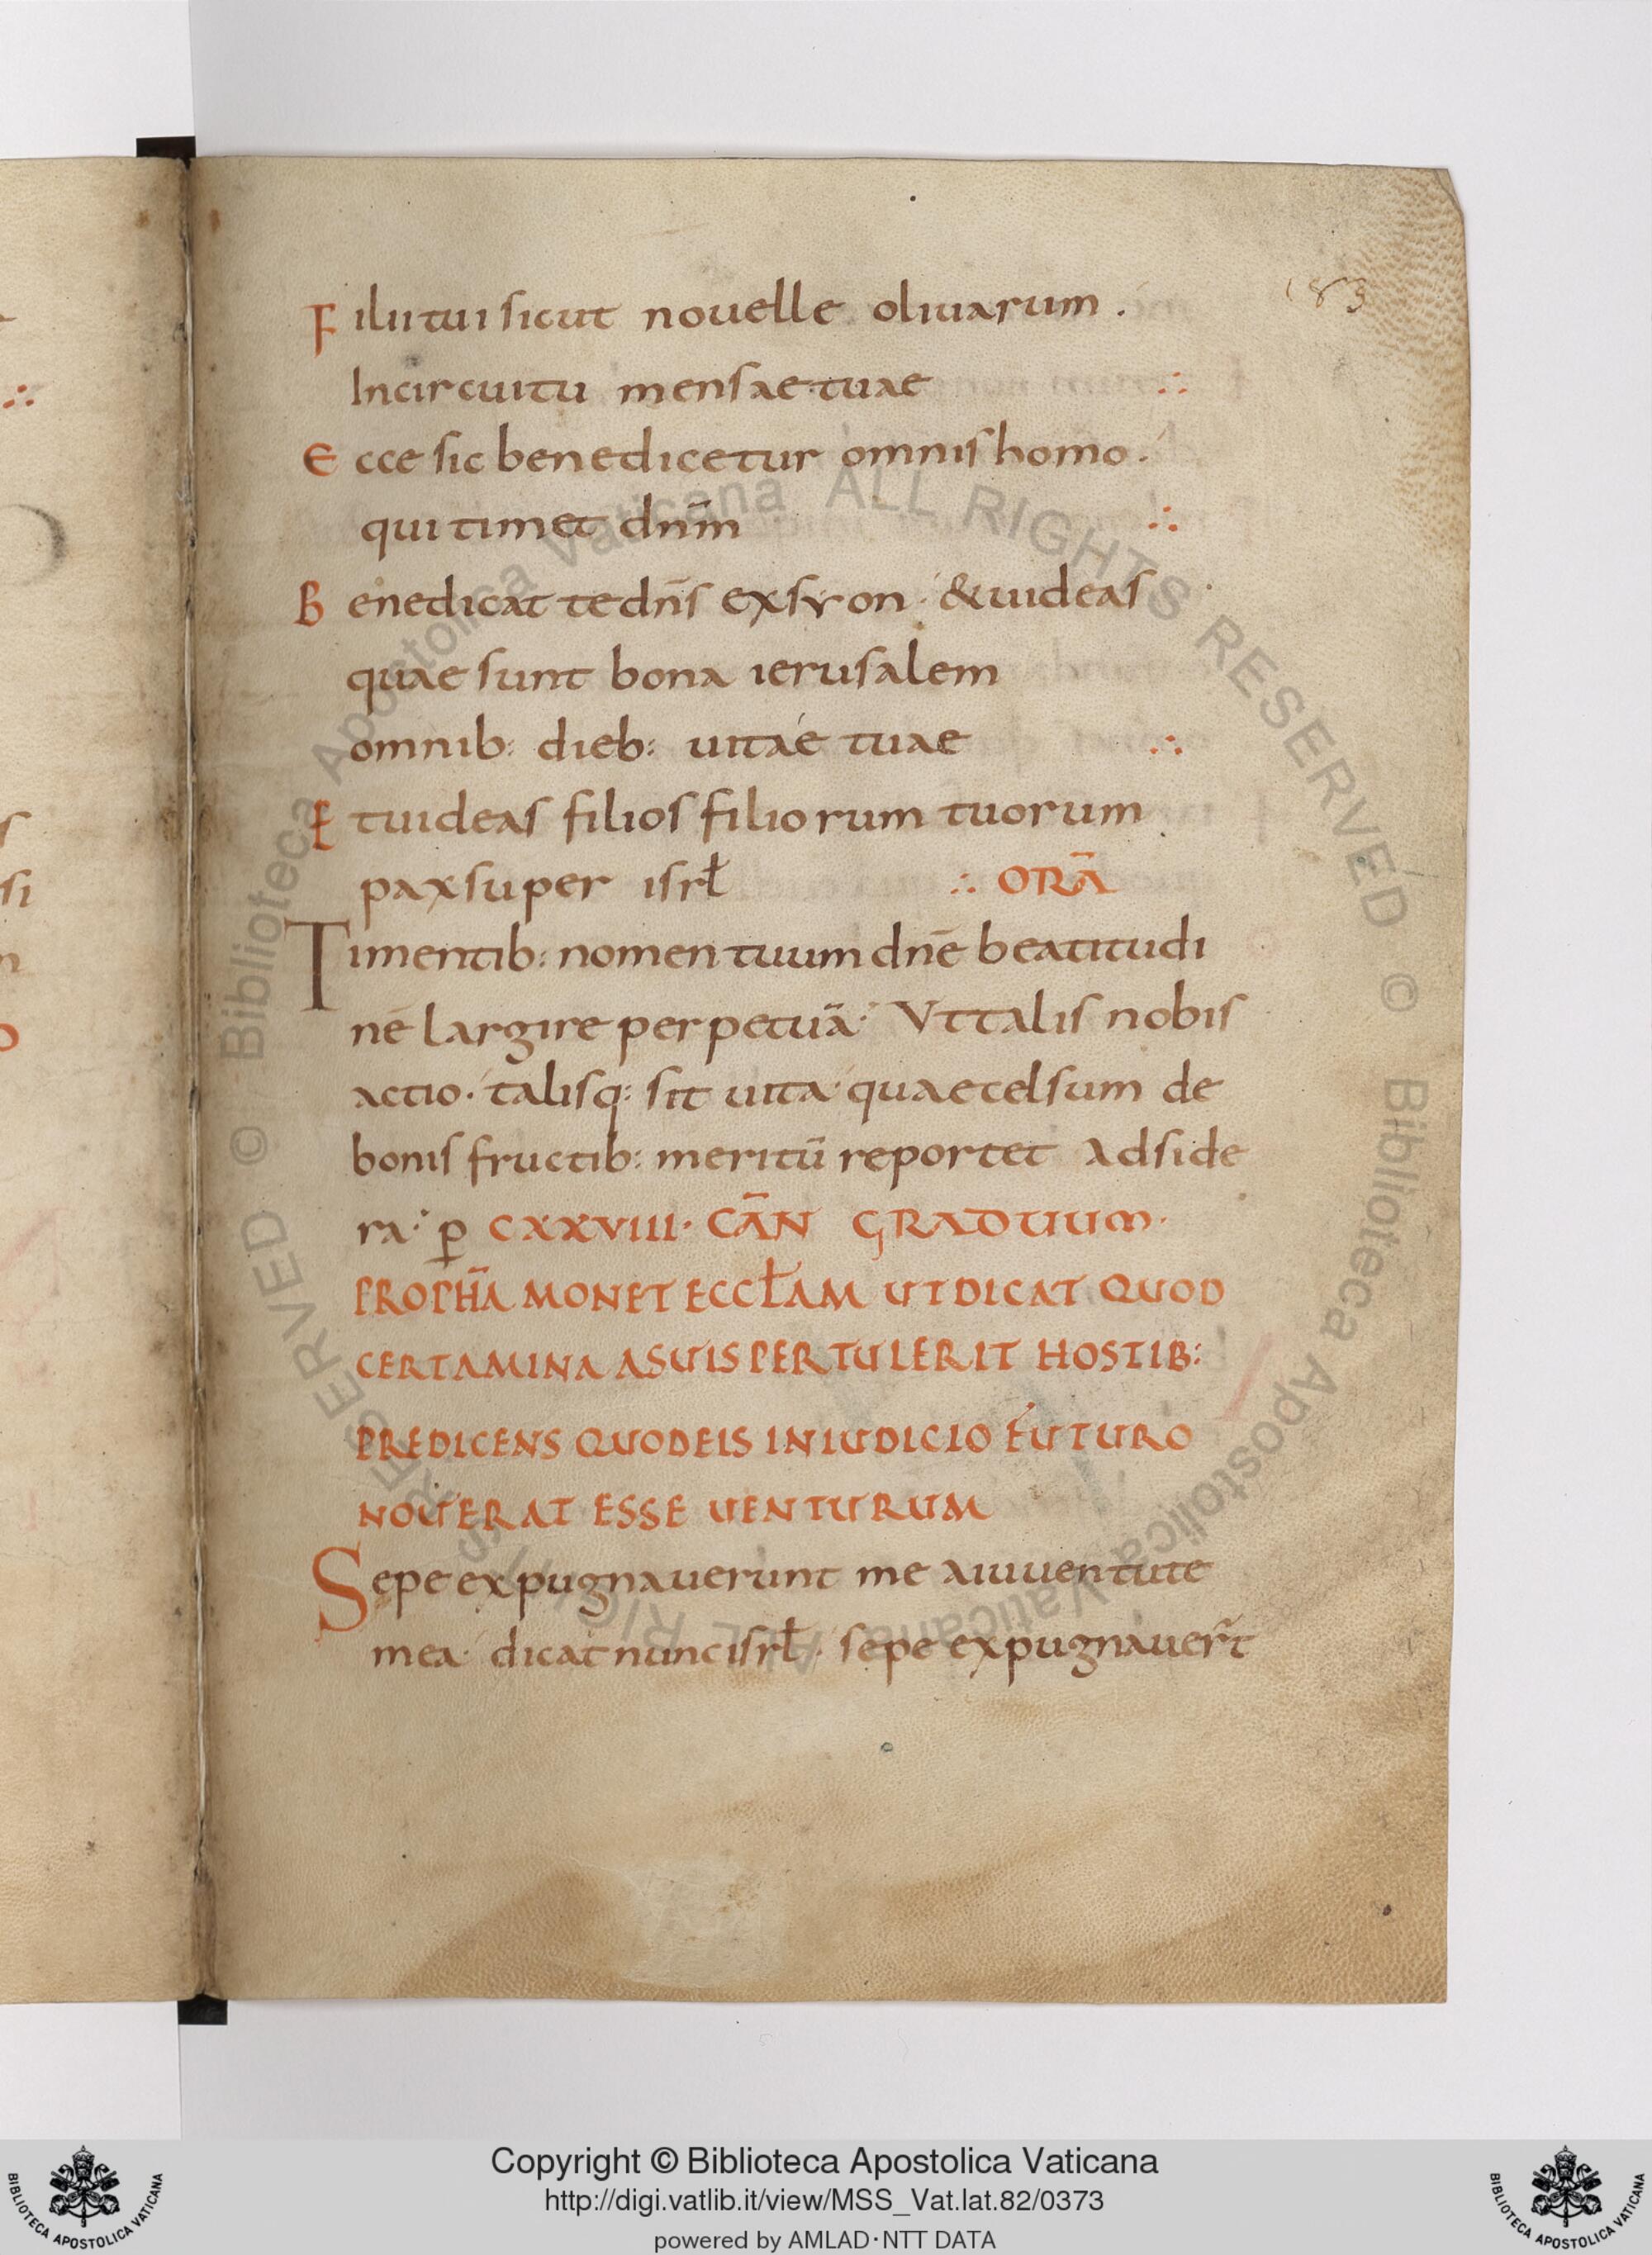 183
Filii tui sicut nouelle oliuarum .
Incircuitu mensae tuae ∴
Ecce sic benedicetur omnis homo .
qui timet dnm̄ ∴
Benedicat te dn̄s exsyon · & uideas
quae sunt bona ierusalem
omnib: dieb: uitae tuae ∴
Et uideas filios filiorum tuorum
pax super isrł ∴ ORĀ
Timentib: nomen tuum dn̄e beatitudi
nē largire perpetuā· Vt talis nobis
actio · talisq: sit uita quae celsum de
bonis fructib: meritū reportet ad side
ra· ꝑ CXXVIII · CĀN GRADUUM ·
PROPHĀ MONET ECCŁAM UT DICAT QUOD
CERTAMINA A SUIS PERTULERIT HOSTIB:
PREDICENS QUOD EIS IN IUDICIO FUTURO
NOUERAT ESSE UENTURUM
Sepe expugnauerunt me a iuuentute
mea· dicat nunc isrł · sepe expugnauer̄t
Copyright © Biblioteca Apostolica Vaticana
http://digi.vatlib.it/view/MSS_Vat.lat.82/0373
powered by AMLAD·NTT DATA
BIBLIOTECA APOSTOLICA VATICANA
BIBLIOTECA APOSTOLICA VATICANA
© Biblioteca Apostolica Vaticana ALL RIGHTS RESERVED © Biblioteca Apostolica Vaticana ALL RIGHTS RESERVED